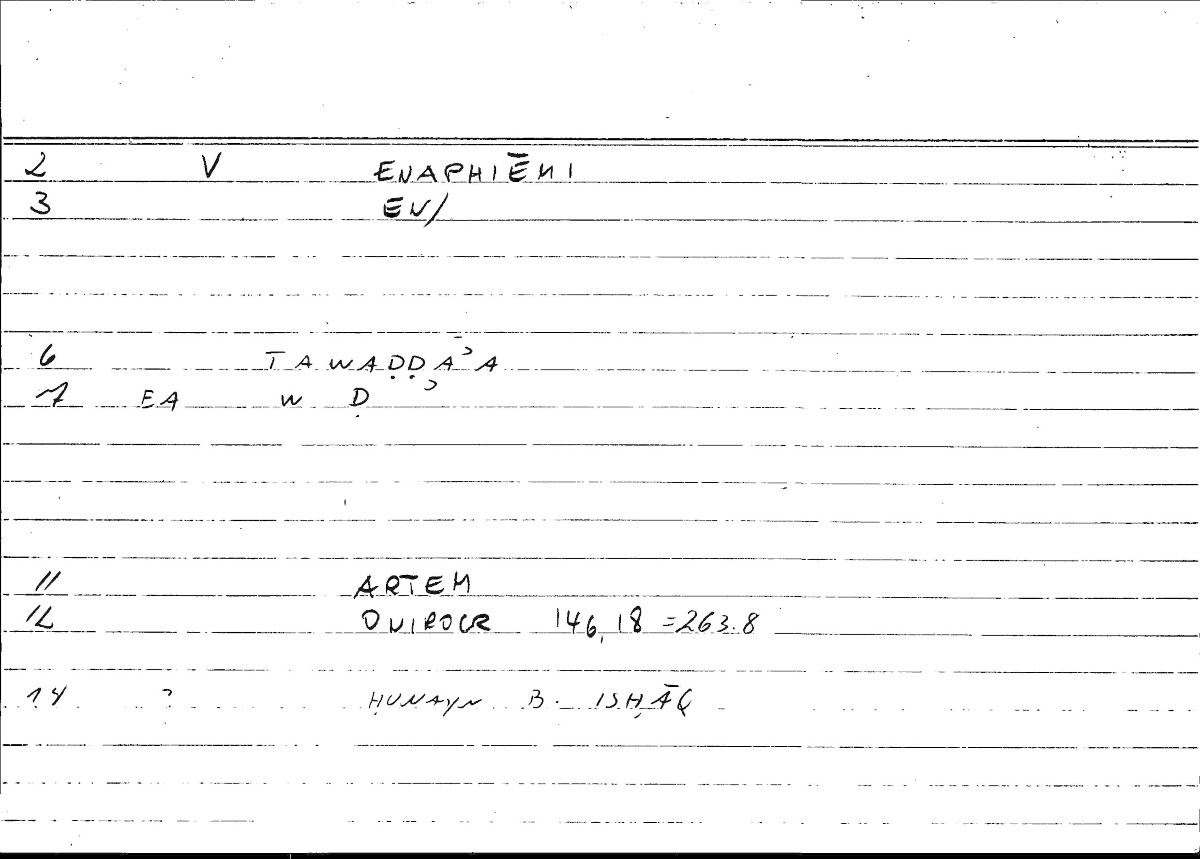 2 V ENAPHIĒMI
3 EN/
6 TAWAḌḌAʾA
7 EA W Ḍ ʾ
11 ARTEM
12 ONIROCR 146,18 =263.8
14 ? ḤUNAYN B. ISḤĀQ